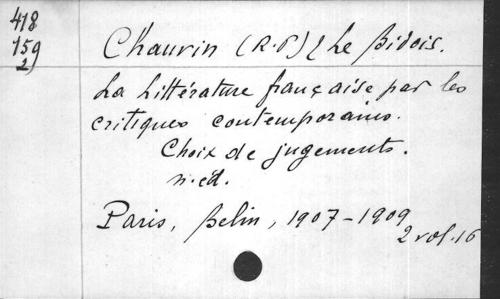 418
159
2)
Chauvin (R.P) & Le Bidois.
La Littérature française par les
critiques contemporains.
Choix de jugements.
n. éd.
Paris, Belin, 1907-1909
2 vol. 16